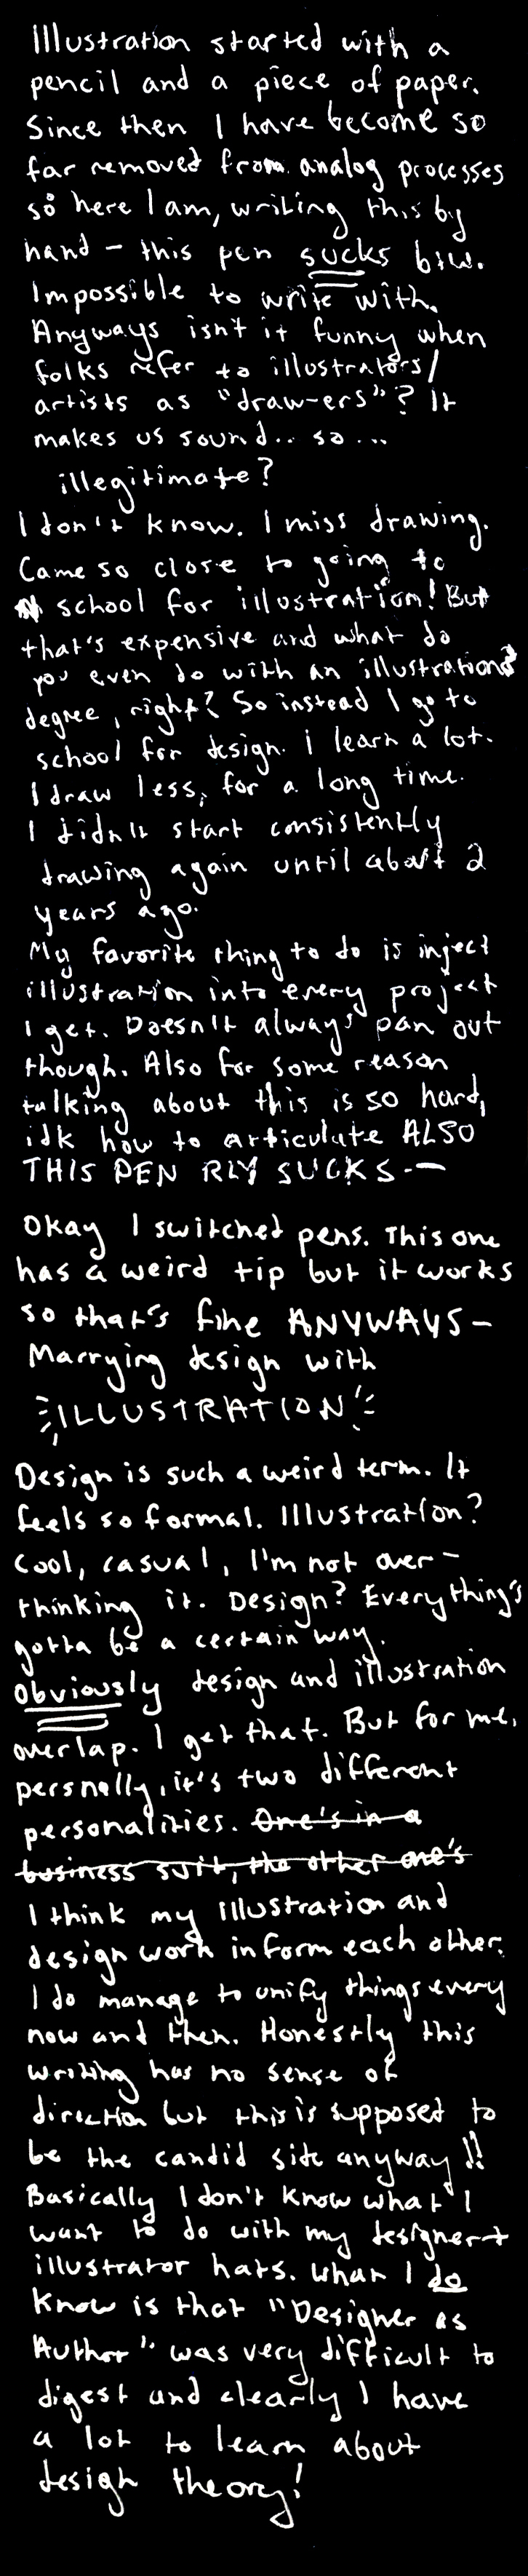 Illustration started with a
pencil and a piece of paper.
Since then I have become so
far removed from analog processes
so here I am, writing this by
hand - this pen sucks btw.
Impossible to write with.
Anyways isn't it funny when
folks refer to illustrators/
artists as "draw-ers"? It
makes us sound.. so...
illegitimate?
I don't know. I miss drawing.
Came so close to going to
school for illustration! But
that's expensive and what do
you even do with an illustration
degree, right? So instead I go to
school for design. I learn a lot.
I draw less, for a long time.
I didn't start consistently
drawing again until about 2
years ago.
My favorite thing to do is inject
illustration into every project
I get. Doesn't always pan out
though. Also for some reason
talking about this is so hard,
idk how to articulate ALSO
THIS PEN RLY SUCKS -
Okay I switched pens. This one
has a weird tip but it works
so that's fine ANYWAYS -
Marrying design with
ILLUSTRATION
Design is such a weird term. It
feels so formal. Illustration?
Cool, casual, I'm not over-
thinking it. Design? Everything's
gotta be a certain way.
Obviously design and illustration
overlap. I get that. But for me,
persnally, it's two different
personalities. One's in a
business suit, the other one's
I think my illustration and
design work inform each other.
I do manage to unify things every
now and then. Honestly this
writing has no sense of
direction but this is supposed to
be the candid side anyway!!
Basically I don't know what I
want to do with my designer +
illustrator hats. What I do
know is that "Designer as
Author" was very difficult to
digest and clearly I have
a lot to learn about
design theory!